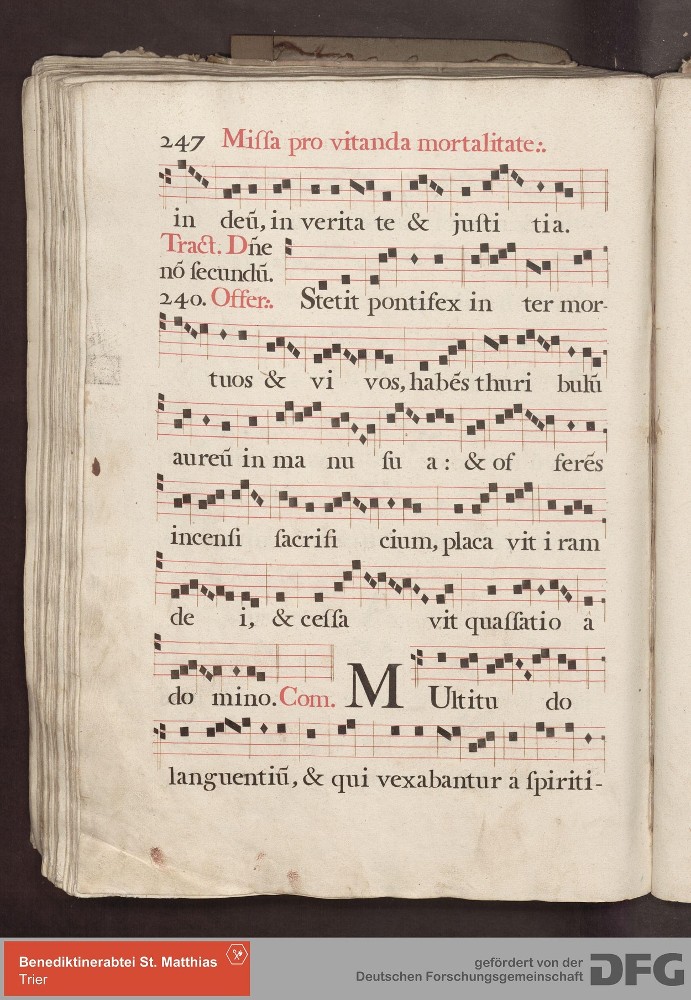 247 Miſſa pro vitanda mortalitate:.
in deũ, in verita te & juſti tia.
Tract. Dñe
nõ ſecundũ.
240. Offer:. Stetit pontifex in ter mor-
tuos & vi vos, habẽs thuri bulũ
aureũ in ma nu ſu a: & of ferẽs
incenſi ſacrifi cium, placa vit i ram
de i, & ceſſa vit quaſſatio â
do mino. Com. MUltitu do
languentiũ, & qui vexabantur a ſpiriti-
Benediktinerabtei St. Matthias
Trier
gefördert von der
Deutschen Forschungsgemeinschaft
DFG